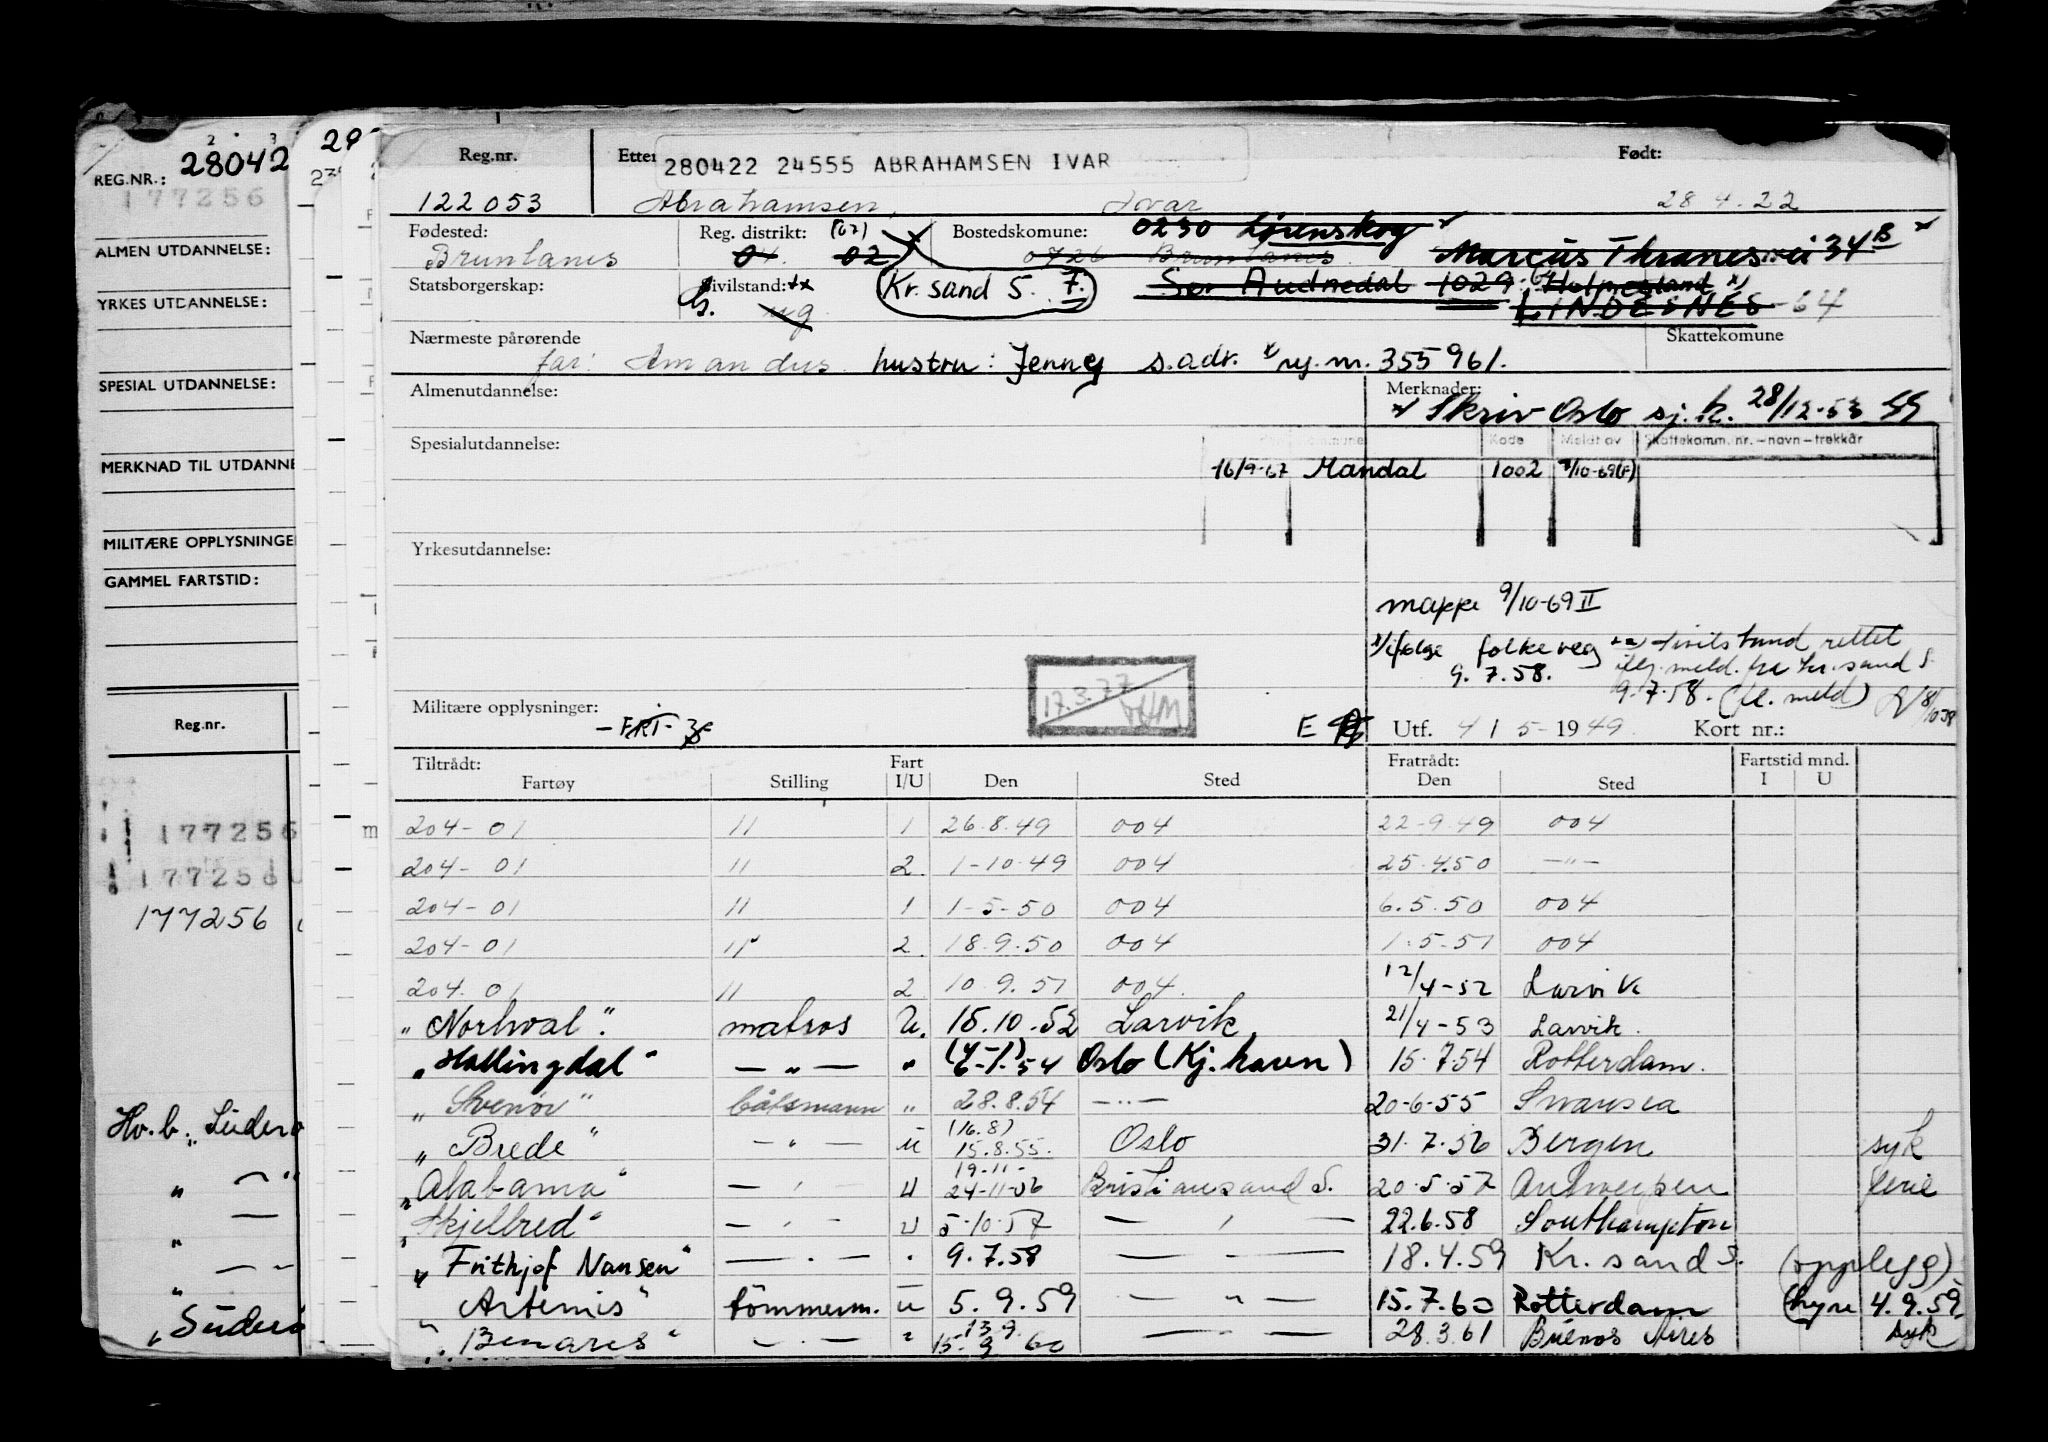 REG.NR.: 28042
177256
ALMEN UTDANNELSE:
YRKES UTDANNELSE:
SPESIAL UTDANNELSE:
MERKNAD TIL UTDANNE
MILITÆRE OPPLYSNINGE
GAMMEL FARTSTID:
Reg.nr.
177256
177256
177256
Hv.b. „Südero
„Südero
Reg.nr. Etter Født:
280422 24555 ABRAHAMSEN IVAR
122053 Abrahamsen, Ivar 28 4.22
Fødested: Reg. distrikt: (07) Bostedskomune: 0230 Lørenskog
Brunlanes 04. 02 0726 Brunlanes Marcus Thranes vei 34 B
Statsborgerskap: Sivilstand: Kr. sand S. 7. Sør Audnedal 1029
g. ug LINDESNES 64
Nærmeste pårørende Skattekomune
far: Amandus. hustru: Jenny s.adr. x) rg. nr. 355961.
Almenutdannelse: Merknader:
x Skriv Oslo sj.k. 28/12-53
Spesialutdannelse: Kode Meldt av Skattekomm. nr.–navn–trekkår
16/9-67 Mandal 1002 9/10-69(F)
Yrkesutdannelse:
mappe 9/10-69 II
x) ifølge folkereg 9.7.58.
xx) Sivilstand rettet
iflg. meld. fra Kr.sand S.
9.7.58. (fl. meld)
17.3.77
Militære opplysninger:
E Utf. 4 / 5 - 1949. Kort nr.:
Tiltrådt: Fart Fratrådt: Fartstid mnd.
Fartøy Stilling I/U Den Sted Den Sted I U
204-01 11 1 26.8.49 004 22-9.49 004
204-01 11 2. 1-10.49 004 25.4.50 —"—
204-01 11 1 1-5-50 004 6.5.50 004
204-01 11 2. 18.9.50 004 1.5-51 004
204.01 11 2 10.9.51 004. 12/4-52 Larvik
„Norhval". matros U. 15.10.52 Larvik 21/4-53 Larvik.
„Hallingdal" — „ — „ Oslo (Kj.havn) 15.7.54 Rotterdam.
„Svenør" båtsmann „ 28.8.54 —"— 20-6-55 Swansea
„Brede" — „ — u (16.8) 15.8.55. Oslo 31.7.56 Bergen syk
„Alabama" — „ — U 19-11- 24-11-56 Kristiansand S. 20.5.57 Antwerpen ferie
„Skjelbred" — „ — u 5-10-57 — „ — 22.6.58 Southampton
„Frithjof Nansen" — „ — „ 9.7.58 — „ — 18.4.59 Kr. sand S. (opplegg)
„Artemis" tømmerm. u 5.9.59 — „ — 15.7.60 Rotterdam (hyre 4.9.59
„Benares" — „ — „ 13.9. 15-9 60 — „ — 28.3.61 Buenos Aires syk